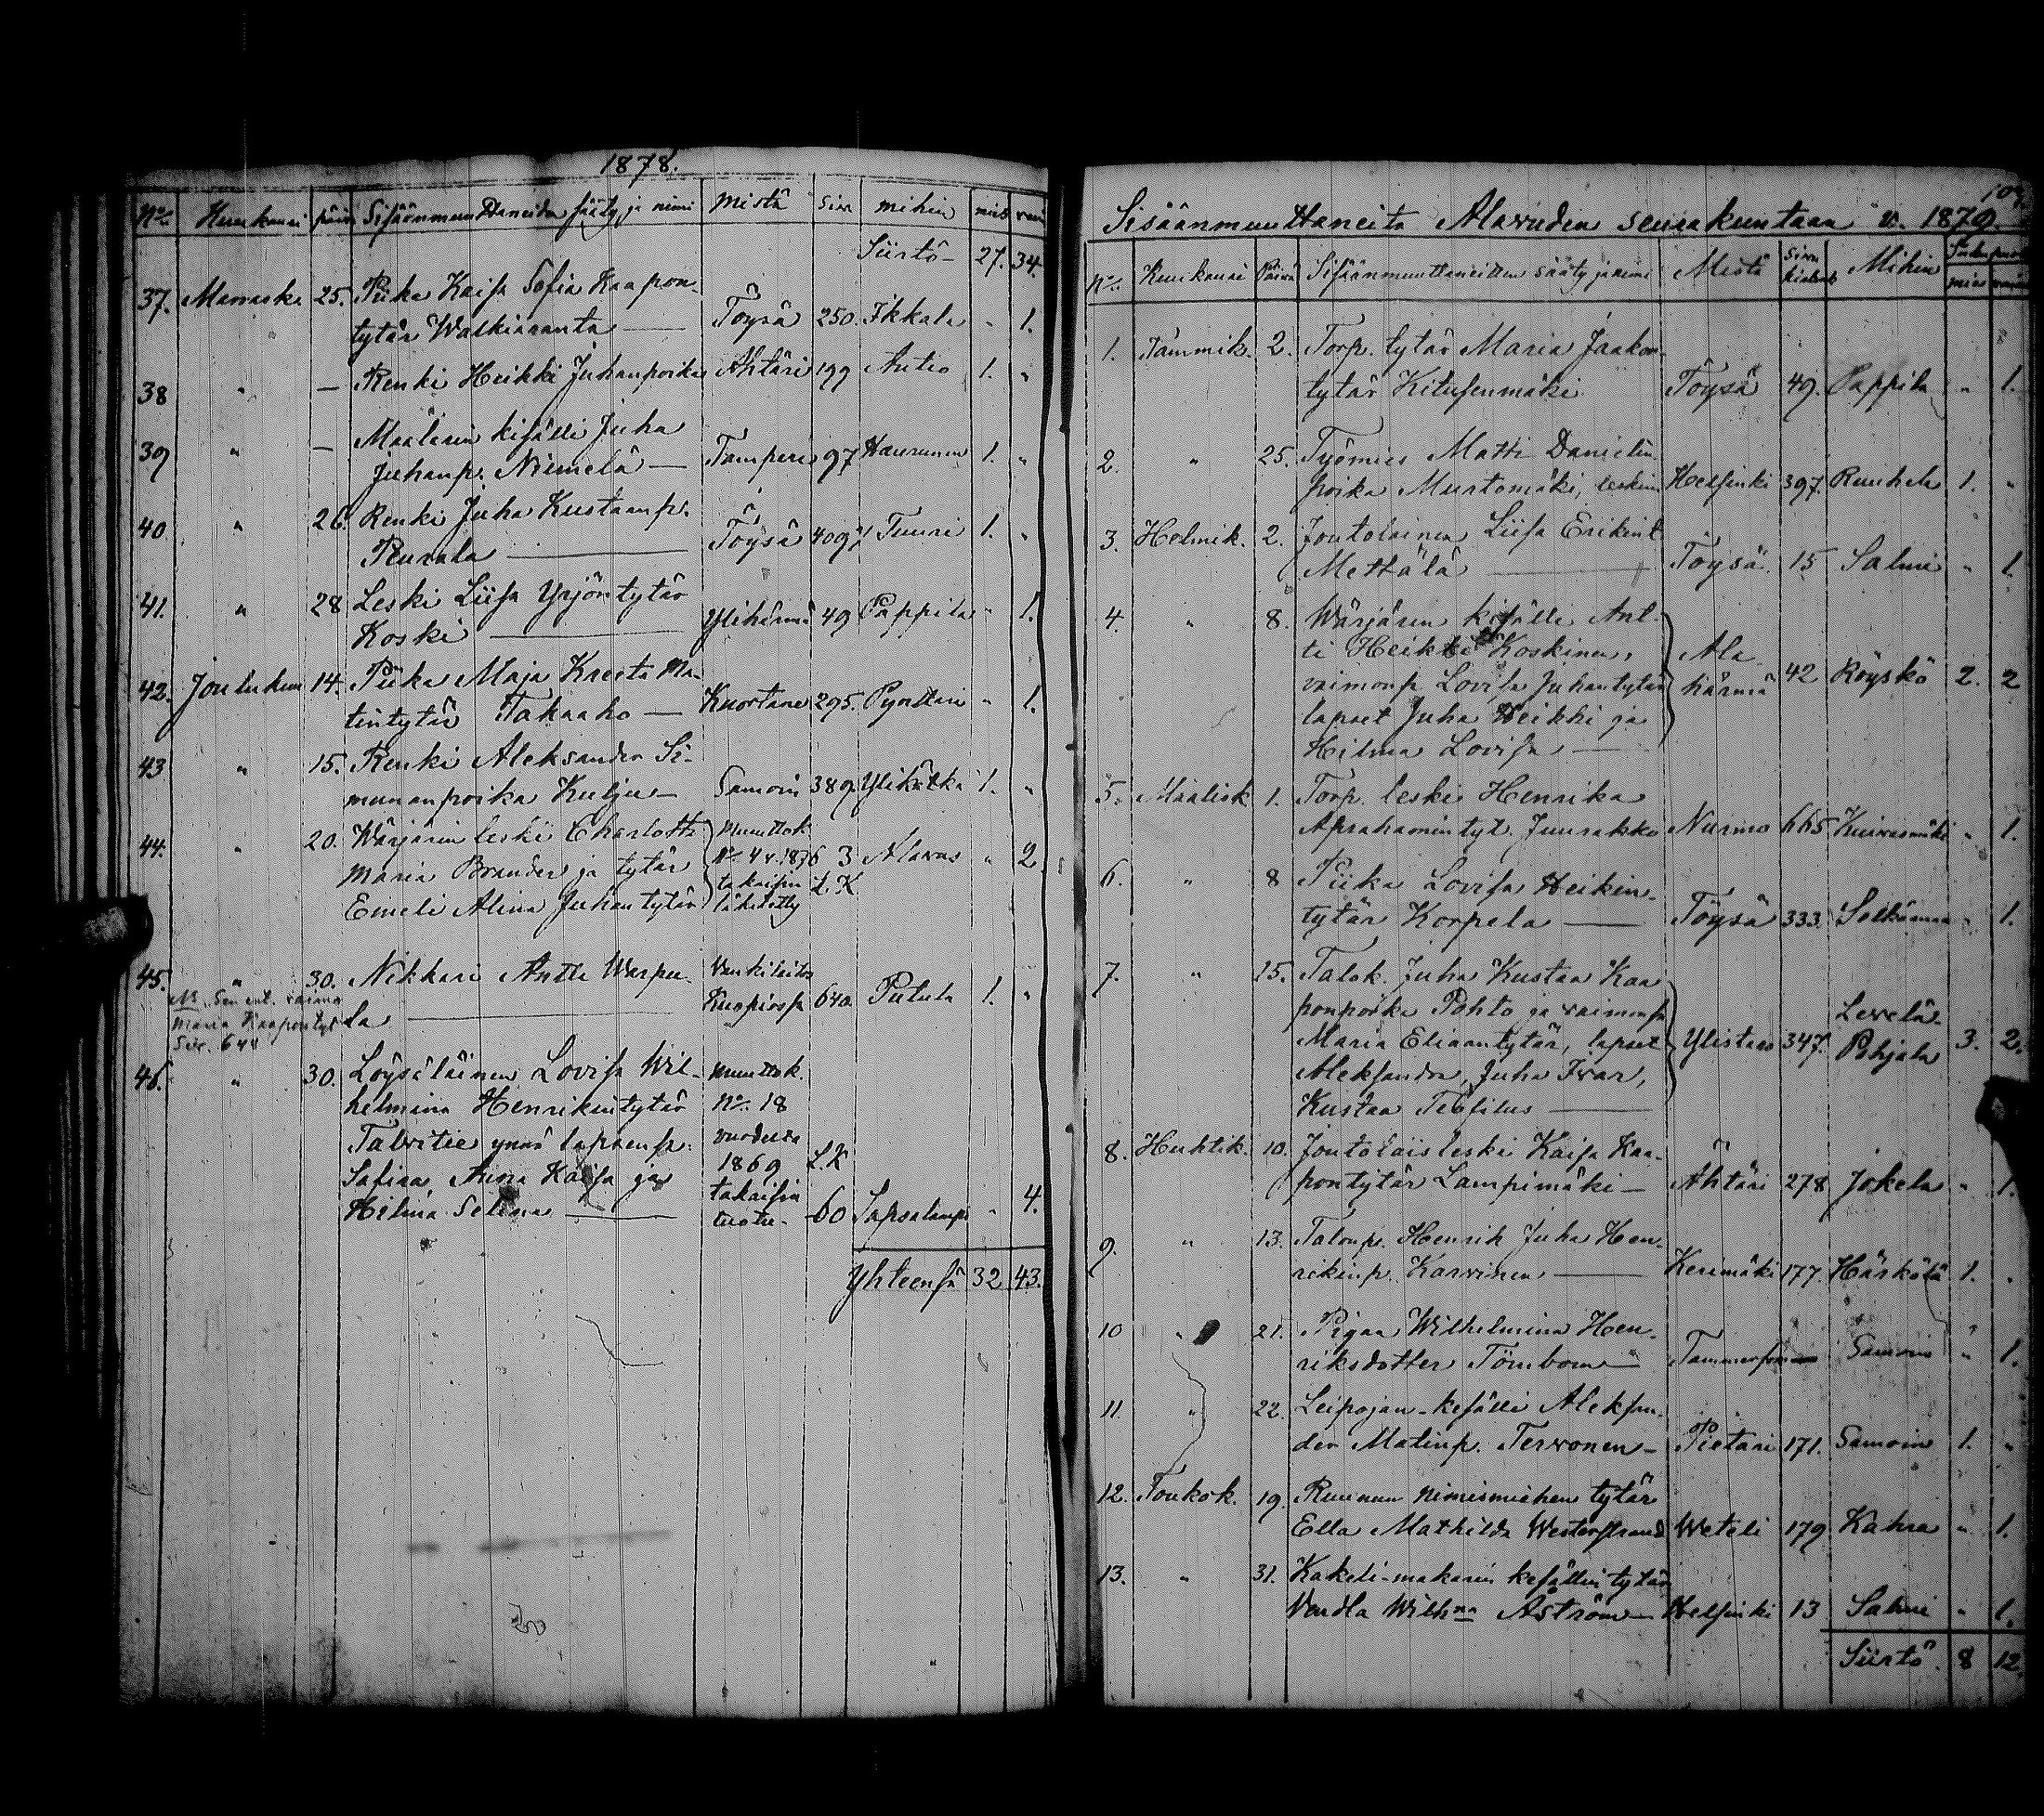 1878.
No. Kuukausi päivä Sisäänmuuttaneiden sääty ja nimi Mistä Sivu mihin mies vaim
Siirto 27. 34.
37. Marrask. 25. Piika Kaisa Sofia Kaapon-
tytär Walkiaranta — Töysä 250. Ikkala " 1.
38 " — Renki Heikki Juhanpoika Ähtäri 199 Autio 1. "
39 " — Maalarin kisälli Juha
Juhanp. Niemelä — Tampere 97 1. "
40 " 26. Renki Juha Kustaanp.
Rusala — Töysä 409 Tuuri 1. "
41. " 28 Leski Liisa Yrjöntytär
Koski — Ylihärmä 49 Pappila " 1.
42. Joulukuu 14. Piika Maja Kreeta Ma-
tintytär Takaaho — Kuortane 295. Pynttäri " 1.
43 " 15. Renki Aleksander Si-
munanpoika Kulju — Samoin 389 1. "
44. " 20. Wärjärin leski Charlotta Muuttok.
Maria Brander ja tytär No. 44. 1876 3 Alavus " 2
Emeli Alina Juhantytär takaisin L.K.
lähetetty
45. " 30. Nikkari Antti Warpu- Vankilasta
la — Kuopiosta 640. Putula 1. "
NB. Sen ent. vaimo
Maria Kaapontyt
Siv. 644
46. " 30. Löysäläinen Lovisa Wil- Muuttok.
helmina Henrikintytär No. 18
Talvitie ynnä lapsensa: vuodesta
Safira Anna Kaisa ja 1869 L.K
Hilma Selina — takaisin
tuotu. 60 Sapsalampi " 4.
Yhteensä 32 43.
107.
Sisäänmuuttaneita Alavuden seurakuntaan v. 1879.
No. Kuukausi Päivä Sisäänmuuttaneitten sääty ja nimi Mistä Sivu Mihin
1. Tammik. 2. Torp. tytär Maria Jaakon-
tytär Kitusenmäki Töysä 49. Pappila " 1.
2. " 25. Työmies Matti Danielin
poika Murtomäki, leskim. Helsinki 397. Ruuhela 1. "
3. Helmik. 2. Joutolainen Liisa Erikint.
Mettälä — Töysä 15 Salmi " 1.
4. " 8. Wärjärin kisälli Ant-
ti Heikki Koskinen,
vaimonsa Lovisa Juhantytär Ala-
lapset Juha Heikki ja härmä 42 Röyskö 2. 2
Hilma Lovisa —
5. Maalisk 1. Torp. leski Henrika
Aprahamintyt. Juurakko Nurmo 665 Kuivasmäki " 1.
6. " 8 Piika Lovisa Heikin-
tytär Korpela — Töysä 333. " 1.
7. " 15. Talok. Juha Kustaa Kaa
ponpoika Pohto ja vaimonsa
Maria Eliaantytär, lapset Ylistaro 347. Levelä- 3. 2.
Aleksandra, Juha Ivar, Pohjala
Kustaa Teofilus —
8. Huhtik. 10. Joutolaisleski Kaisa Kaa-
pontytär Lampimäki — Ähtäri 278 Jokela " 1.
9. " 13. Talonp. Henrik Juha Hen-
rikinp. Karvinen — Kerimäki 177. Härkölä 1. "
10 " 21. Pigan Wilhelmina Hen-
riksdotter Törnbom — Tammerfors — Samoin " 1.
11. " 22. Leipojan-kesälli Aleksan-
der Matinp. Tervonen — Pietari 171. Samoin 1. "
12. Toukok. 19. Ruunun nimismiehen tytär
Ella Mathilda Westerstrand Weteli 179. Kahra " 1.
13. " 31. Kakeli-makarin kesällin tytär
Vendla Wilhna Åström — Helsinki 13 Salmi " 1.
Siirto 8 12.